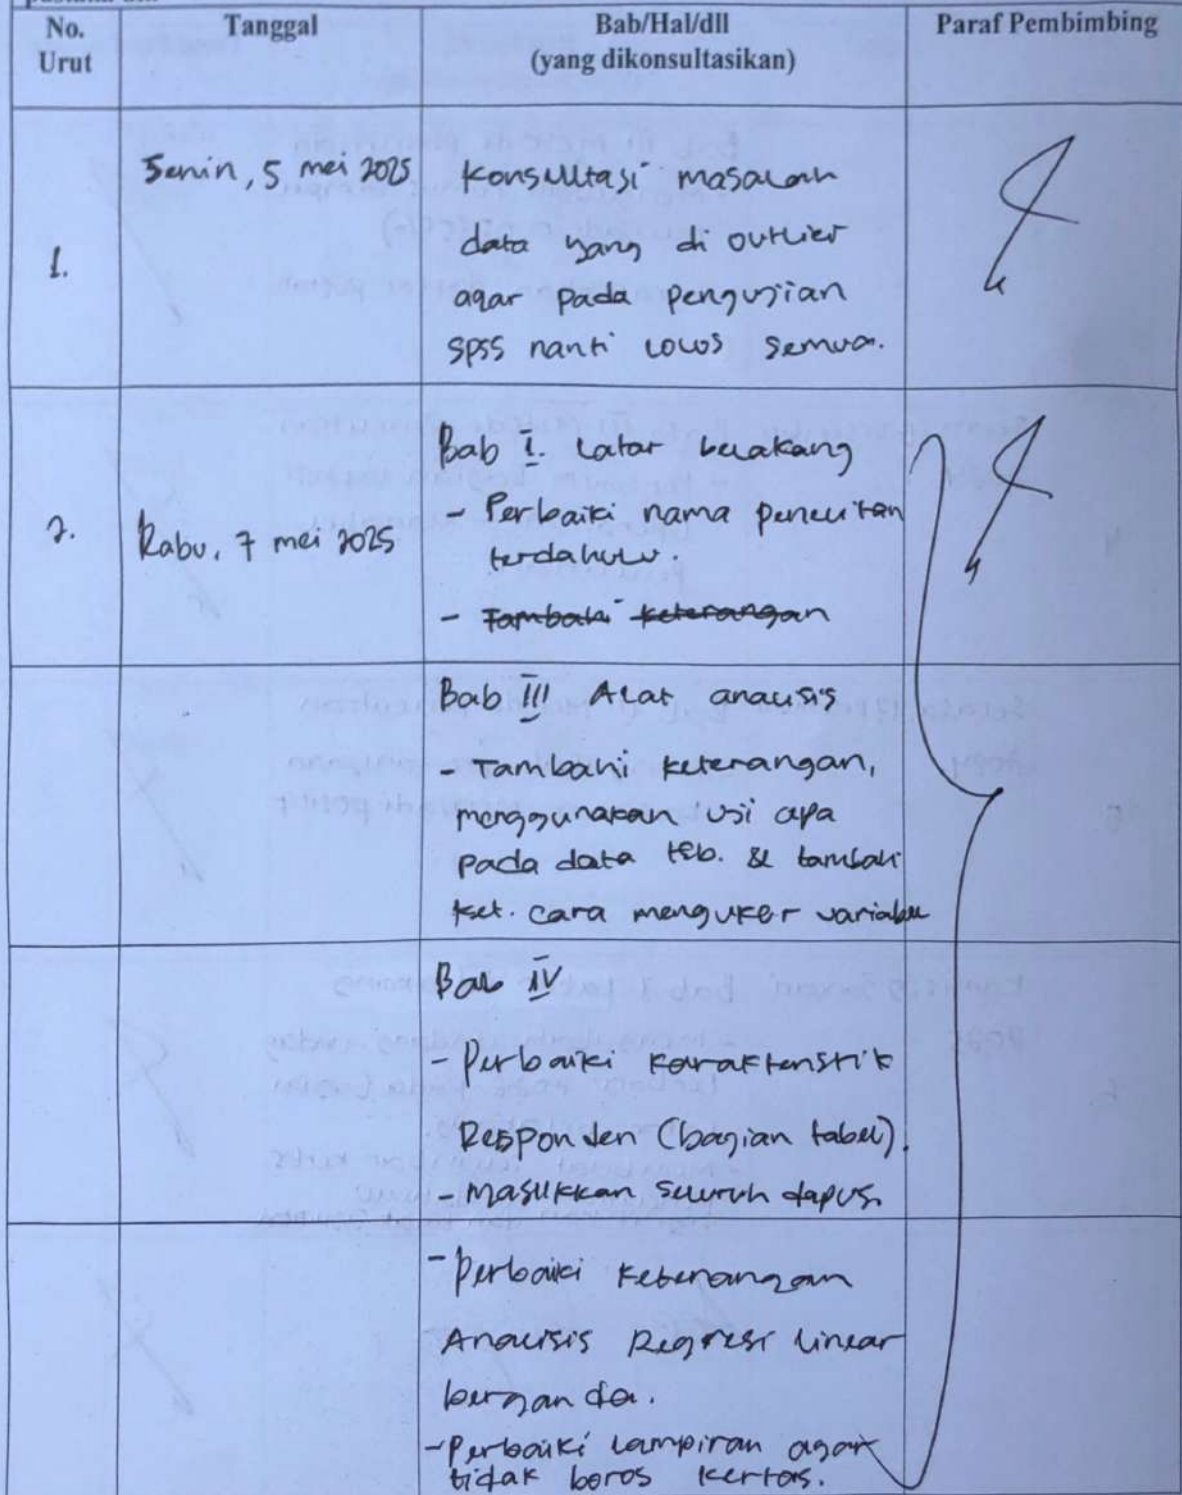 No. Urut
Tanggal
Bab/Hal/dll
(yang dikonsultasikan)
Paraf Pembimbing
1.
Senin, 5 mei 2025
Konsultasi masalah
data yang di outlier
agar pada pengujian
SPSS nanti lolos semua.
2.
Rabu, 7 mei 2025
Bab I. Latar belakang
- Perbaiki nama penelitan
terdahulu.
- Tambahi keterangan
Bab III Alat analisis
- Tambahi keterangan,
menggunakan uji apa
pada data tsb. & tambah
ket. cara menguker variabel
Bab IV
- Perbaiki karakteristik
Responden (bagian tabel).
- Masukkan seluruh dapus.
- Perbaiki keterangan
Analisis Regresi linear
berganda.
- Perbaiki lampiran agar
tidak boros kertas.